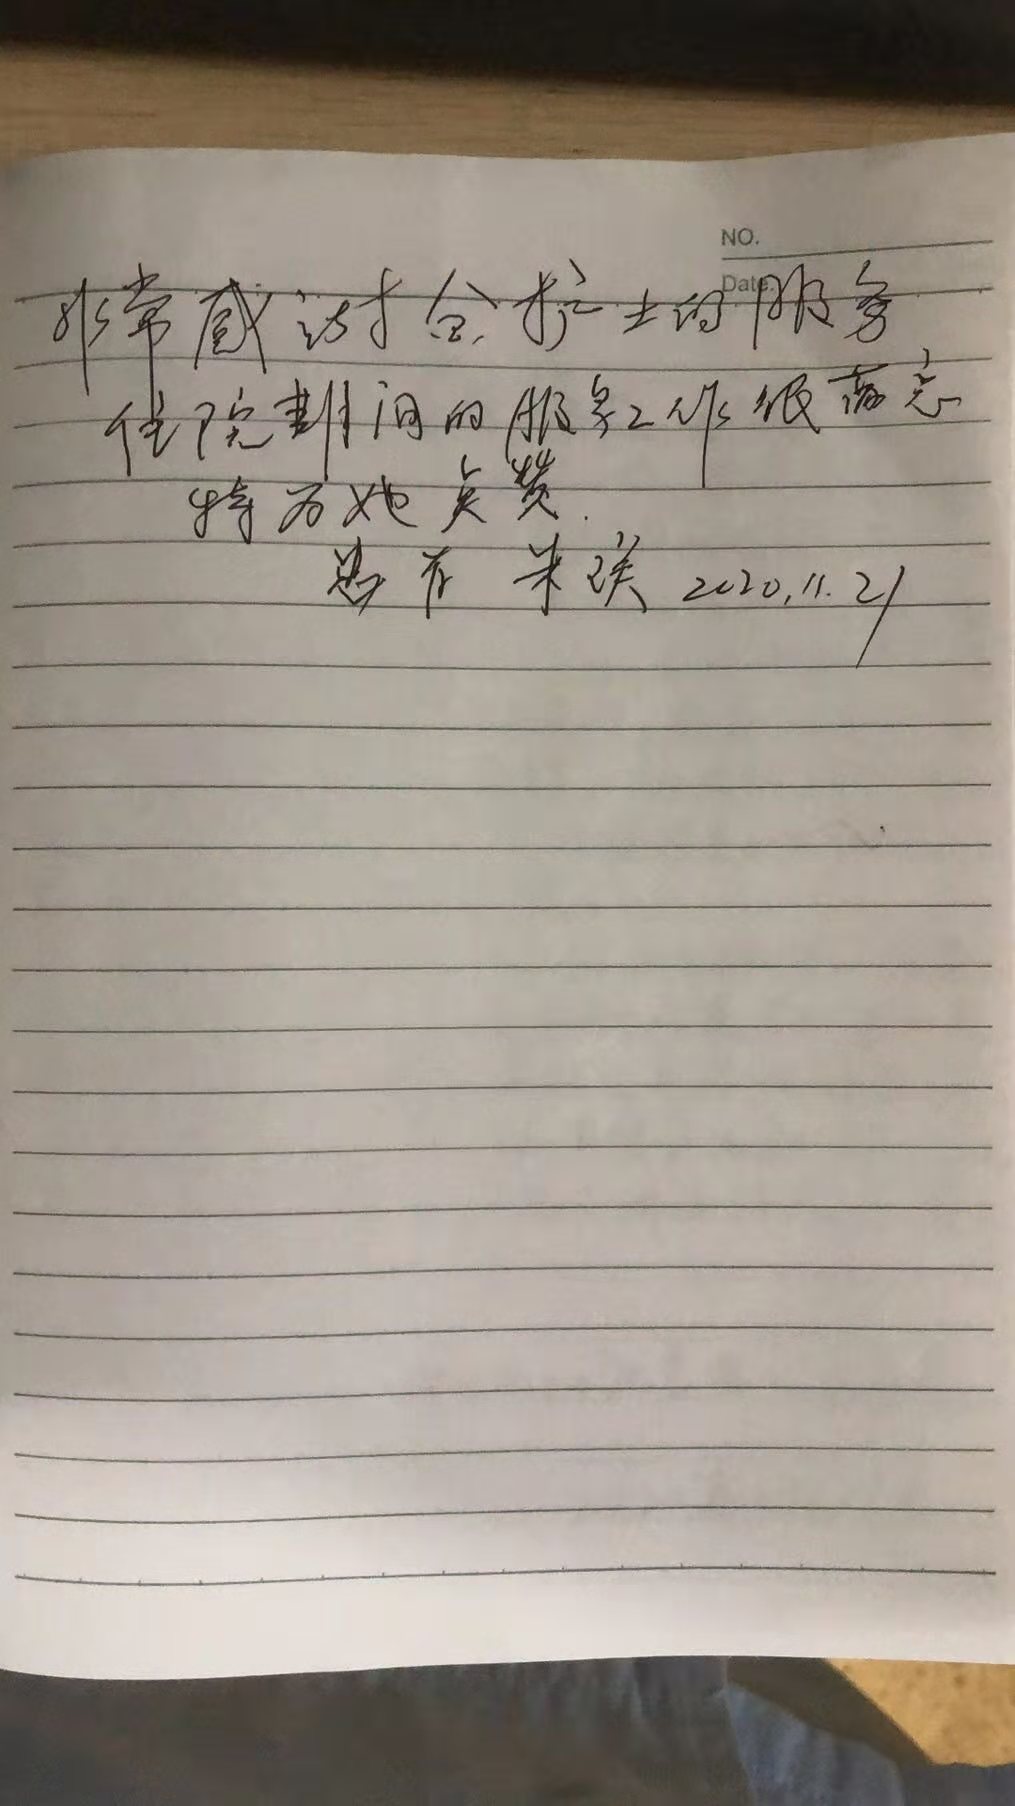 NO.
Date.
非常感谢台护士的服务
住院期间的服务工作很满意
特为她点赞.
患者 朱瑛 2020.11.21